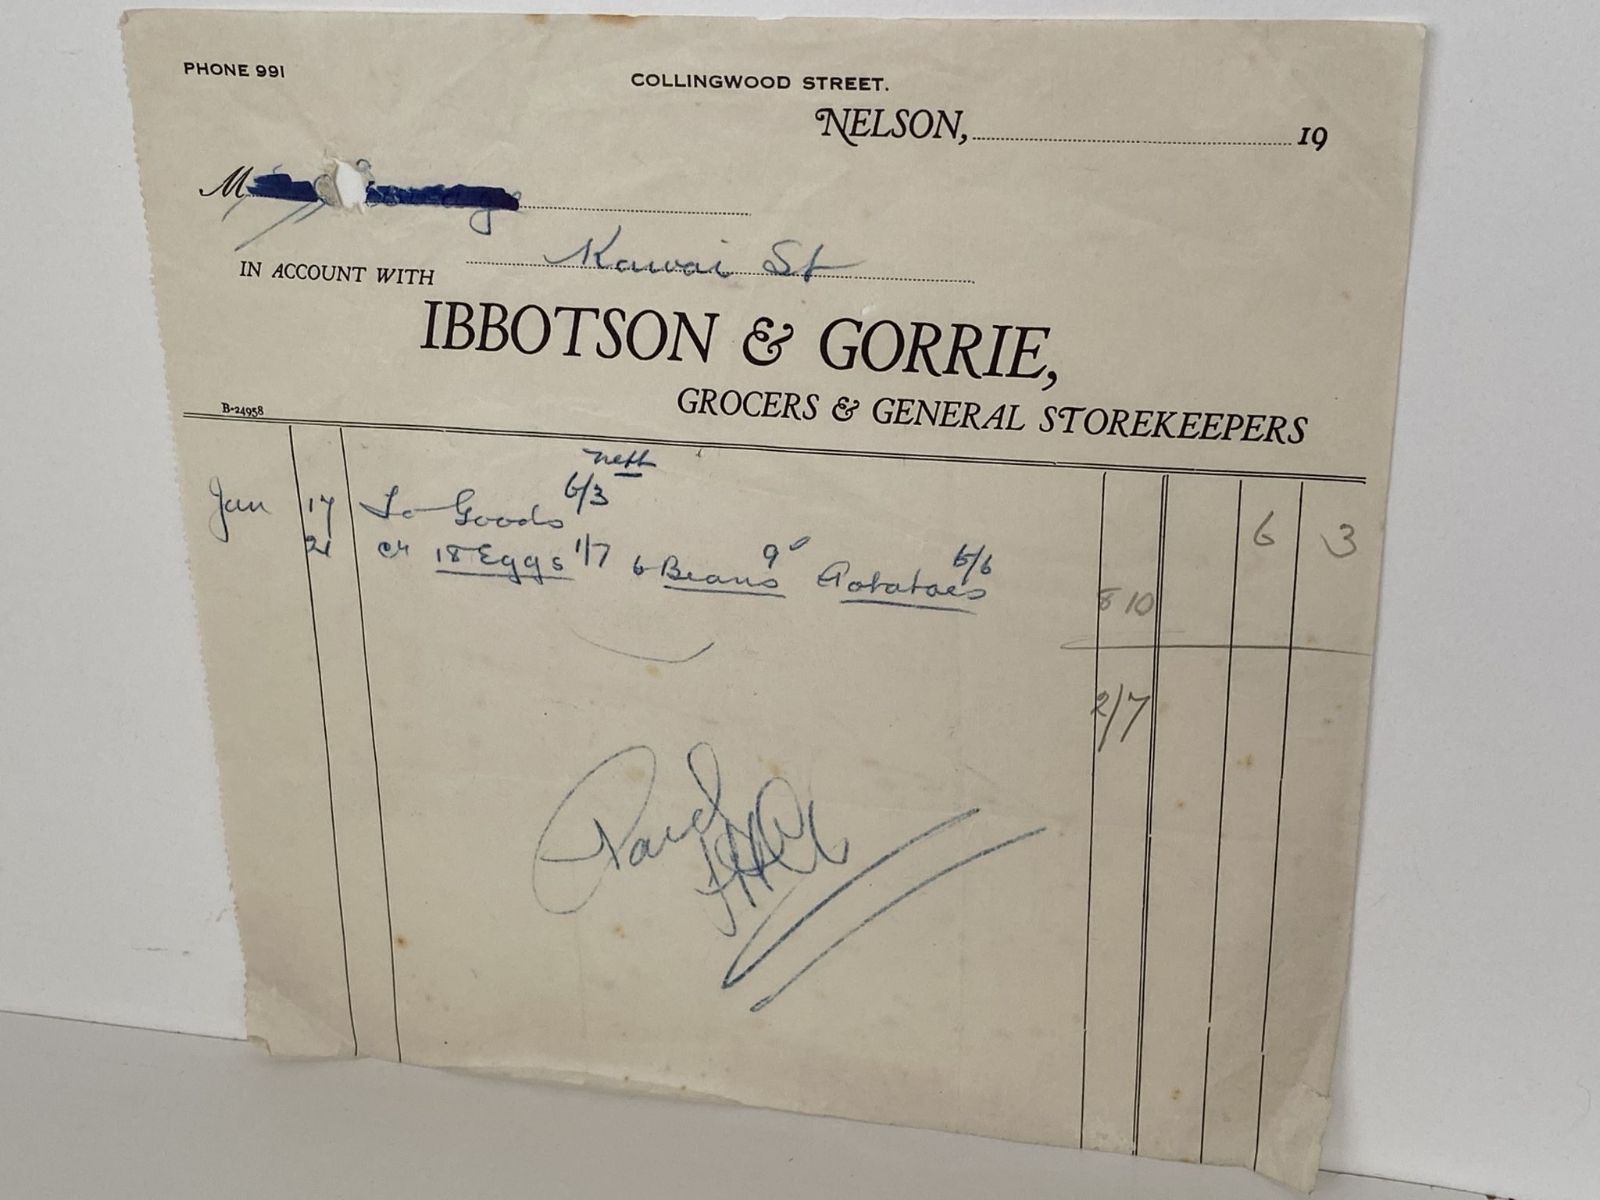 PHONE 991
COLLINGWOOD STREET.
NELSON, 19
M
Kawai St
IN ACCOUNT WITH
IBBOTSON & GORRIE,
GROCERS & GENERAL STOREKEEPERS
B-24958
nett
Jan 17 To Goods 6/3 6 3
21 cr 18 Eggs 1/7 6 Beans 9d Potatoes 6/6
8 10
2/7
Paid